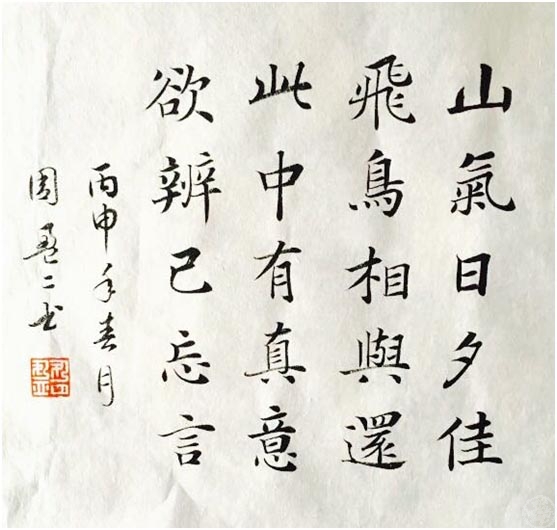 山氣日夕佳
飛鳥相與還
此中有真意
欲辨已忘言
丙申年春月